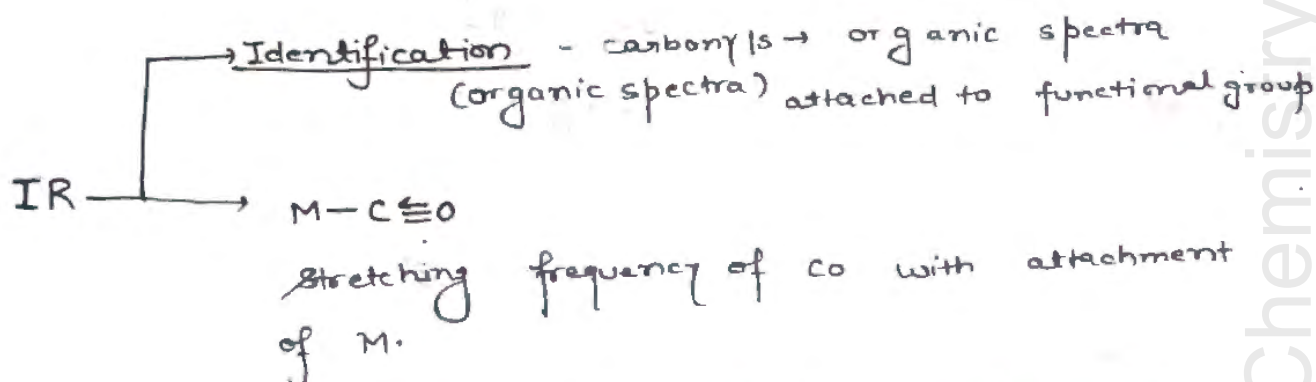 Identification - carbonyls → organic spectra
(organic spectra) attached to functional group
IR
M-C≡O
Stretching frequency of CO with attachment
of M.
Chemistry